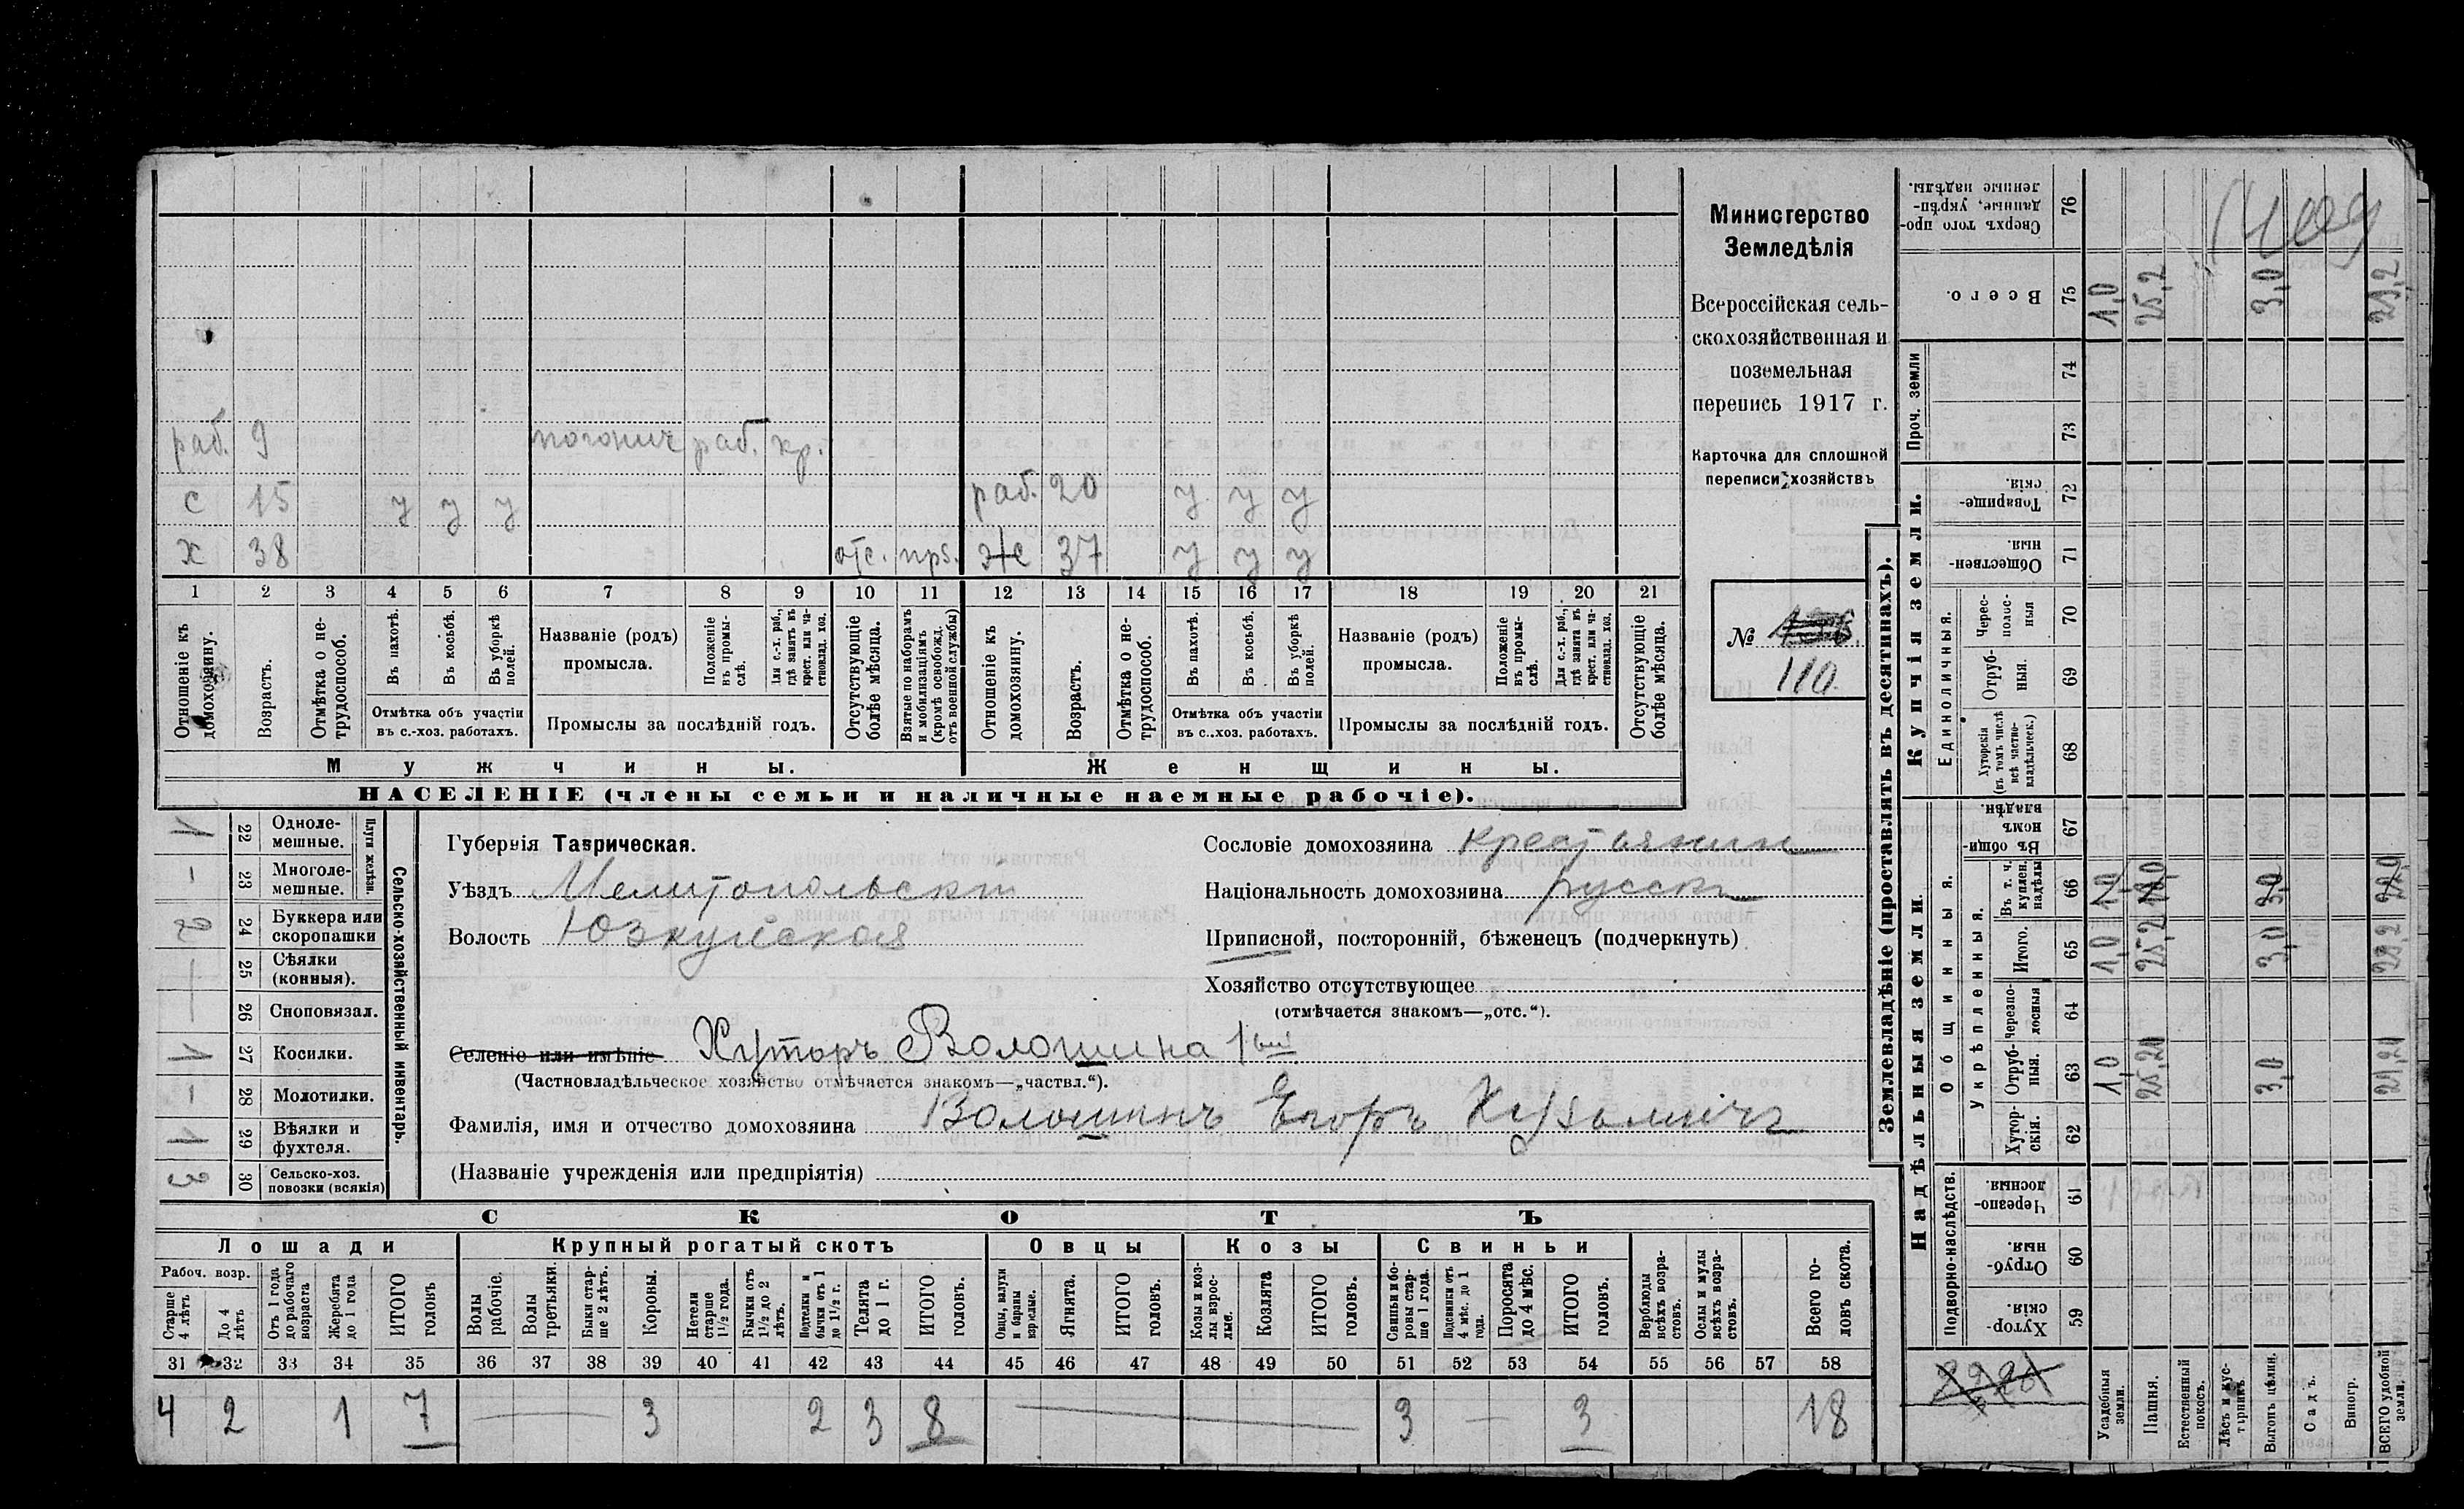 Министерство
Земледѣлія
Всероссійская сель-
скохозяйственная и
поземельная
перепись 1917 г.
Карточка для сплошной
переписи хозяйствъ
№
110.
раб. 9 погонич раб. кр.
с 15 у у у раб. 20 у у у
х 38 отс. ж 37 у у у
1 2 3 4 5 6 7 8 9 10 11 12 13 14 15 16 17 18 19 20 21
Отношеніе къ домохозяину.
Возрастъ.
Отмѣтка о не-трудоспособ.
Въ пахотѣ.
Въ косьбѣ.
Въ уборкѣ полей.
Отмѣтка объ участіи
въ с.-хоз. работахъ.
Названіе (родъ)
промысла.
Положеніе въ промы-слѣ.
Для с.-х. раб., гдѣ занятъ въ крест. или ча-стновлад. хоз.
Промыслы за послѣдній годъ.
Отсутствующіе болѣе мѣсяца.
Взятые по наборамъ и мобилизаціямъ (кромѣ освобожд. отъ военной службы)
Отношеніе къ домохозяину.
Возрастъ.
Отмѣтка о не-трудоспособ.
Въ пахотѣ.
Въ косьбѣ.
Въ уборкѣ полей.
Отмѣтка объ участіи
въ с..хоз. работахъ.
Названіе (родъ)
промысла.
Положеніе въ промы-слѣ.
Для с.-х. раб., гдѣ занята въ крест. или ча-стновлад. хоз.
Промыслы за послѣдній годъ.
Отсутствующіе болѣе мѣсяца.
Мужчины. Женщины.
НАСЕЛЕНІЕ (члены семьи и наличные наемные рабочіе).
Сельско-хозяйственный инвентарь.
Плуги желѣзн.
1 22 Одноле-мешные.
– 23 Многоле-мешные.
2 24 Буккера или скоропашки
— 25 Сѣялки (конныя).
26 Сноповязал.
1 27 Косилки.
– 28 Молотилки.
1 29 Вѣялки и фухтеля.
3 30 Сельско-хоз. повозки (всякія)
Губернія Таврическая.
Уѣздъ Мелитопольскій
Волость Юзкуйская
Сословіе домохозяина крестьянин
Національность домохозяина русскій
Приписной, посторонній, бѣженецъ (подчеркнуть)
Хозяйство отсутствующее
(отмѣчается знакомъ—„отс.“).
Селеніе или имѣніе Хуторъ Волошина 1ый
(Частновладѣльческое хозяйство отмѣчается знакомъ—„частвл.“).
Фамилія, имя и отчество домохозяина Волошинъ Егоръ Кузьмичъ
(Названіе учрежденія или предпріятія)
СКОТЪ
Лошади Крупный рогатый скотъ Овцы Козы Свиньи
Рабоч. возр.
Старше 4 лѣтъ
До 4 лѣтъ
Отъ 1 года до рабочаго возраста
Жеребята до 1 года
ИТОГО головъ
Волы рабочіе.
Волы третьяки.
Быки стар-ше 2 лѣтъ.
Коровы.
Нетели старше 1½ года.
Бычки отъ 1½ до 2 лѣтъ.
Подтелки и бычки отъ 1 до 1½ г.
Телята до 1 г.
ИТОГО головъ.
Овцы, валухи и бараны взрослые.
Ягнята.
ИТОГО головъ.
Козы и коз-лы взрос-лые.
Козлята
ИТОГО головъ.
Свиньи и бо-ровы стар-ше 1 года.
Подсвинки отъ 4 мѣс. до 1 года.
Поросята до 4 мѣс.
ИТОГО головъ.
Верблюды всѣхъ возра-стовъ.
Ослы и мулы всѣхъ возра-стовъ.
Всего го-ловъ скота.
31 32 33 34 35 36 37 38 39 40 41 42 43 44 45 46 47 48 49 50 51 52 53 54 55 56 57 58
4 2 1 7 — 3 2 3 8 — 3 — 3 18
Землевладѣніе (проставлять въ десятинахъ).
Надѣльныя земли. Купчія земли. Проч. земли
Подворно-наслѣдств. Общинныя. Единоличныя.
Укрѣпленныя.
59 Хутор-скія.
60 Отруб-ныя.
61 Черезпо-лосныя.
62 Хутор-скія.
63 Отруб-ныя.
64 Черезпо-лосныя
65 Итого.
66 Въ т. ч. куплен. надѣлы
67 Въ общин-номъ владѣн.
68 Хуторскія (въ томъ числѣ всѣ частно-владѣльческ.)
69 Отруб-ныя.
70 Черес-полос-ныя
71 Обществен-ныя.
72 Товарище-скія.
73
74
75 Всего.
76 Сверхъ того про-данные, укрѣп-ленные надѣлы.
Усадебныя земли. 1,0 1,0 1,0 1,0
Пашня. 25,20 25,2 25,2
Естественный покосъ.
Лѣсъ и кус-тарникъ
Выгонъ цѣлин. 3,0 3,0 3,0
Садъ.
Виногр.
ВСЕГО удобной земли. 29,20 29,2 29,2